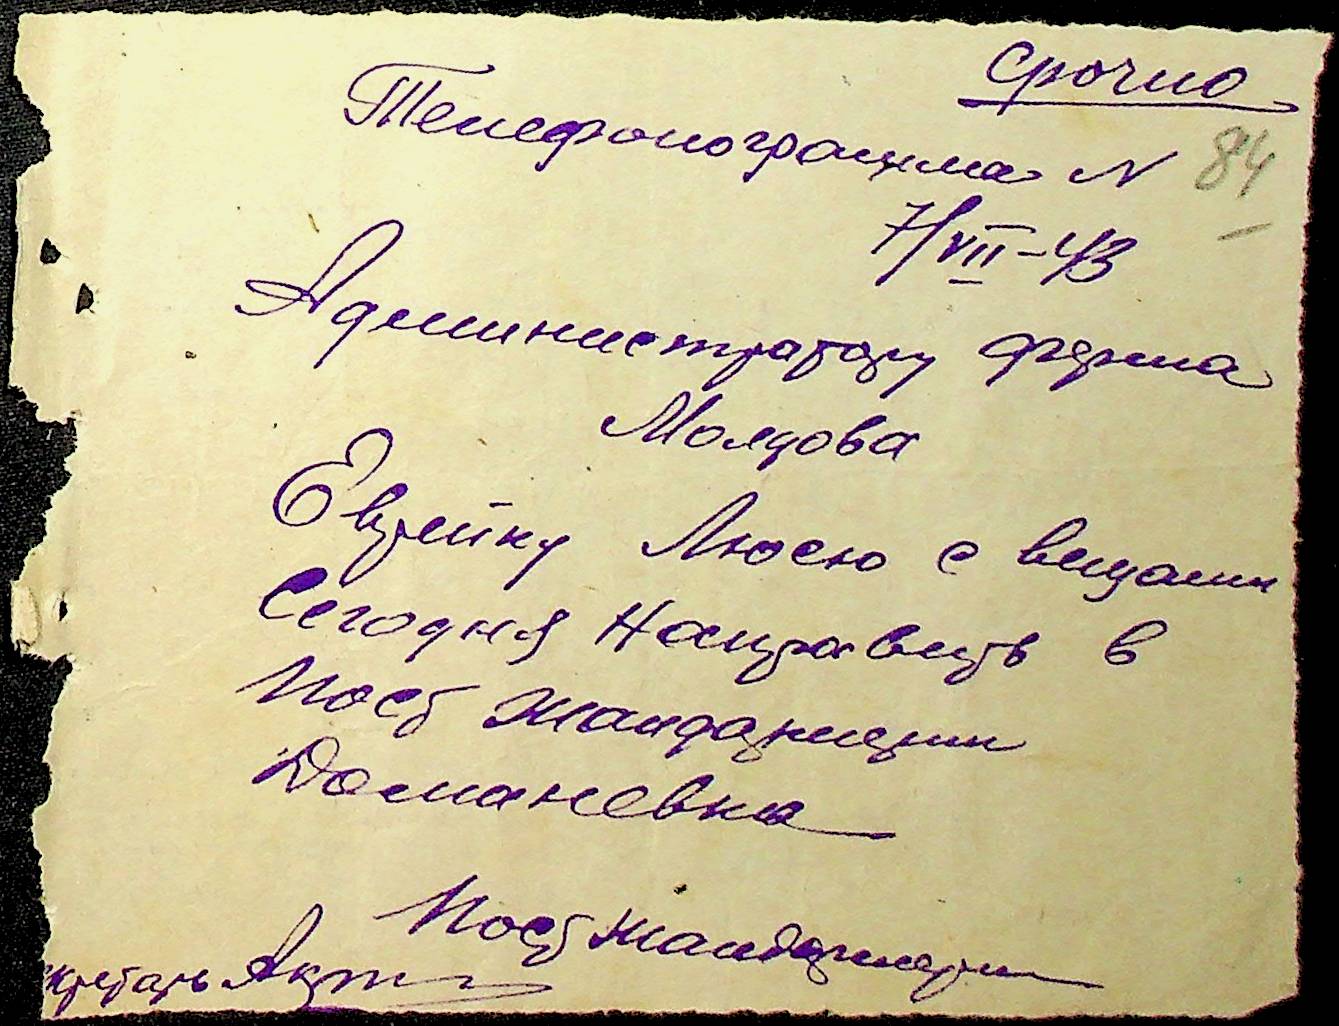 Срочно
Телефонограмма N
84
7/VII-43
Администратору ферма
Молдова
Еврейку Люсю с вещами
Сегодня Направить в
Пост Жандармерии
Доманевка
Пост Жандармерии
кретарь